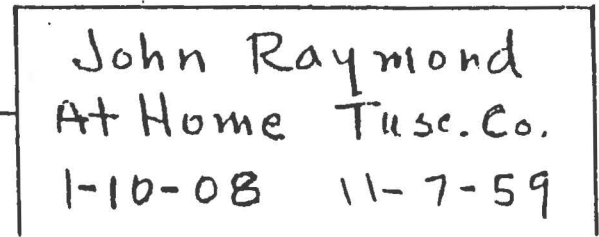 John Raymond
At Home Tusc. Co.
1-10-08 11-7-59